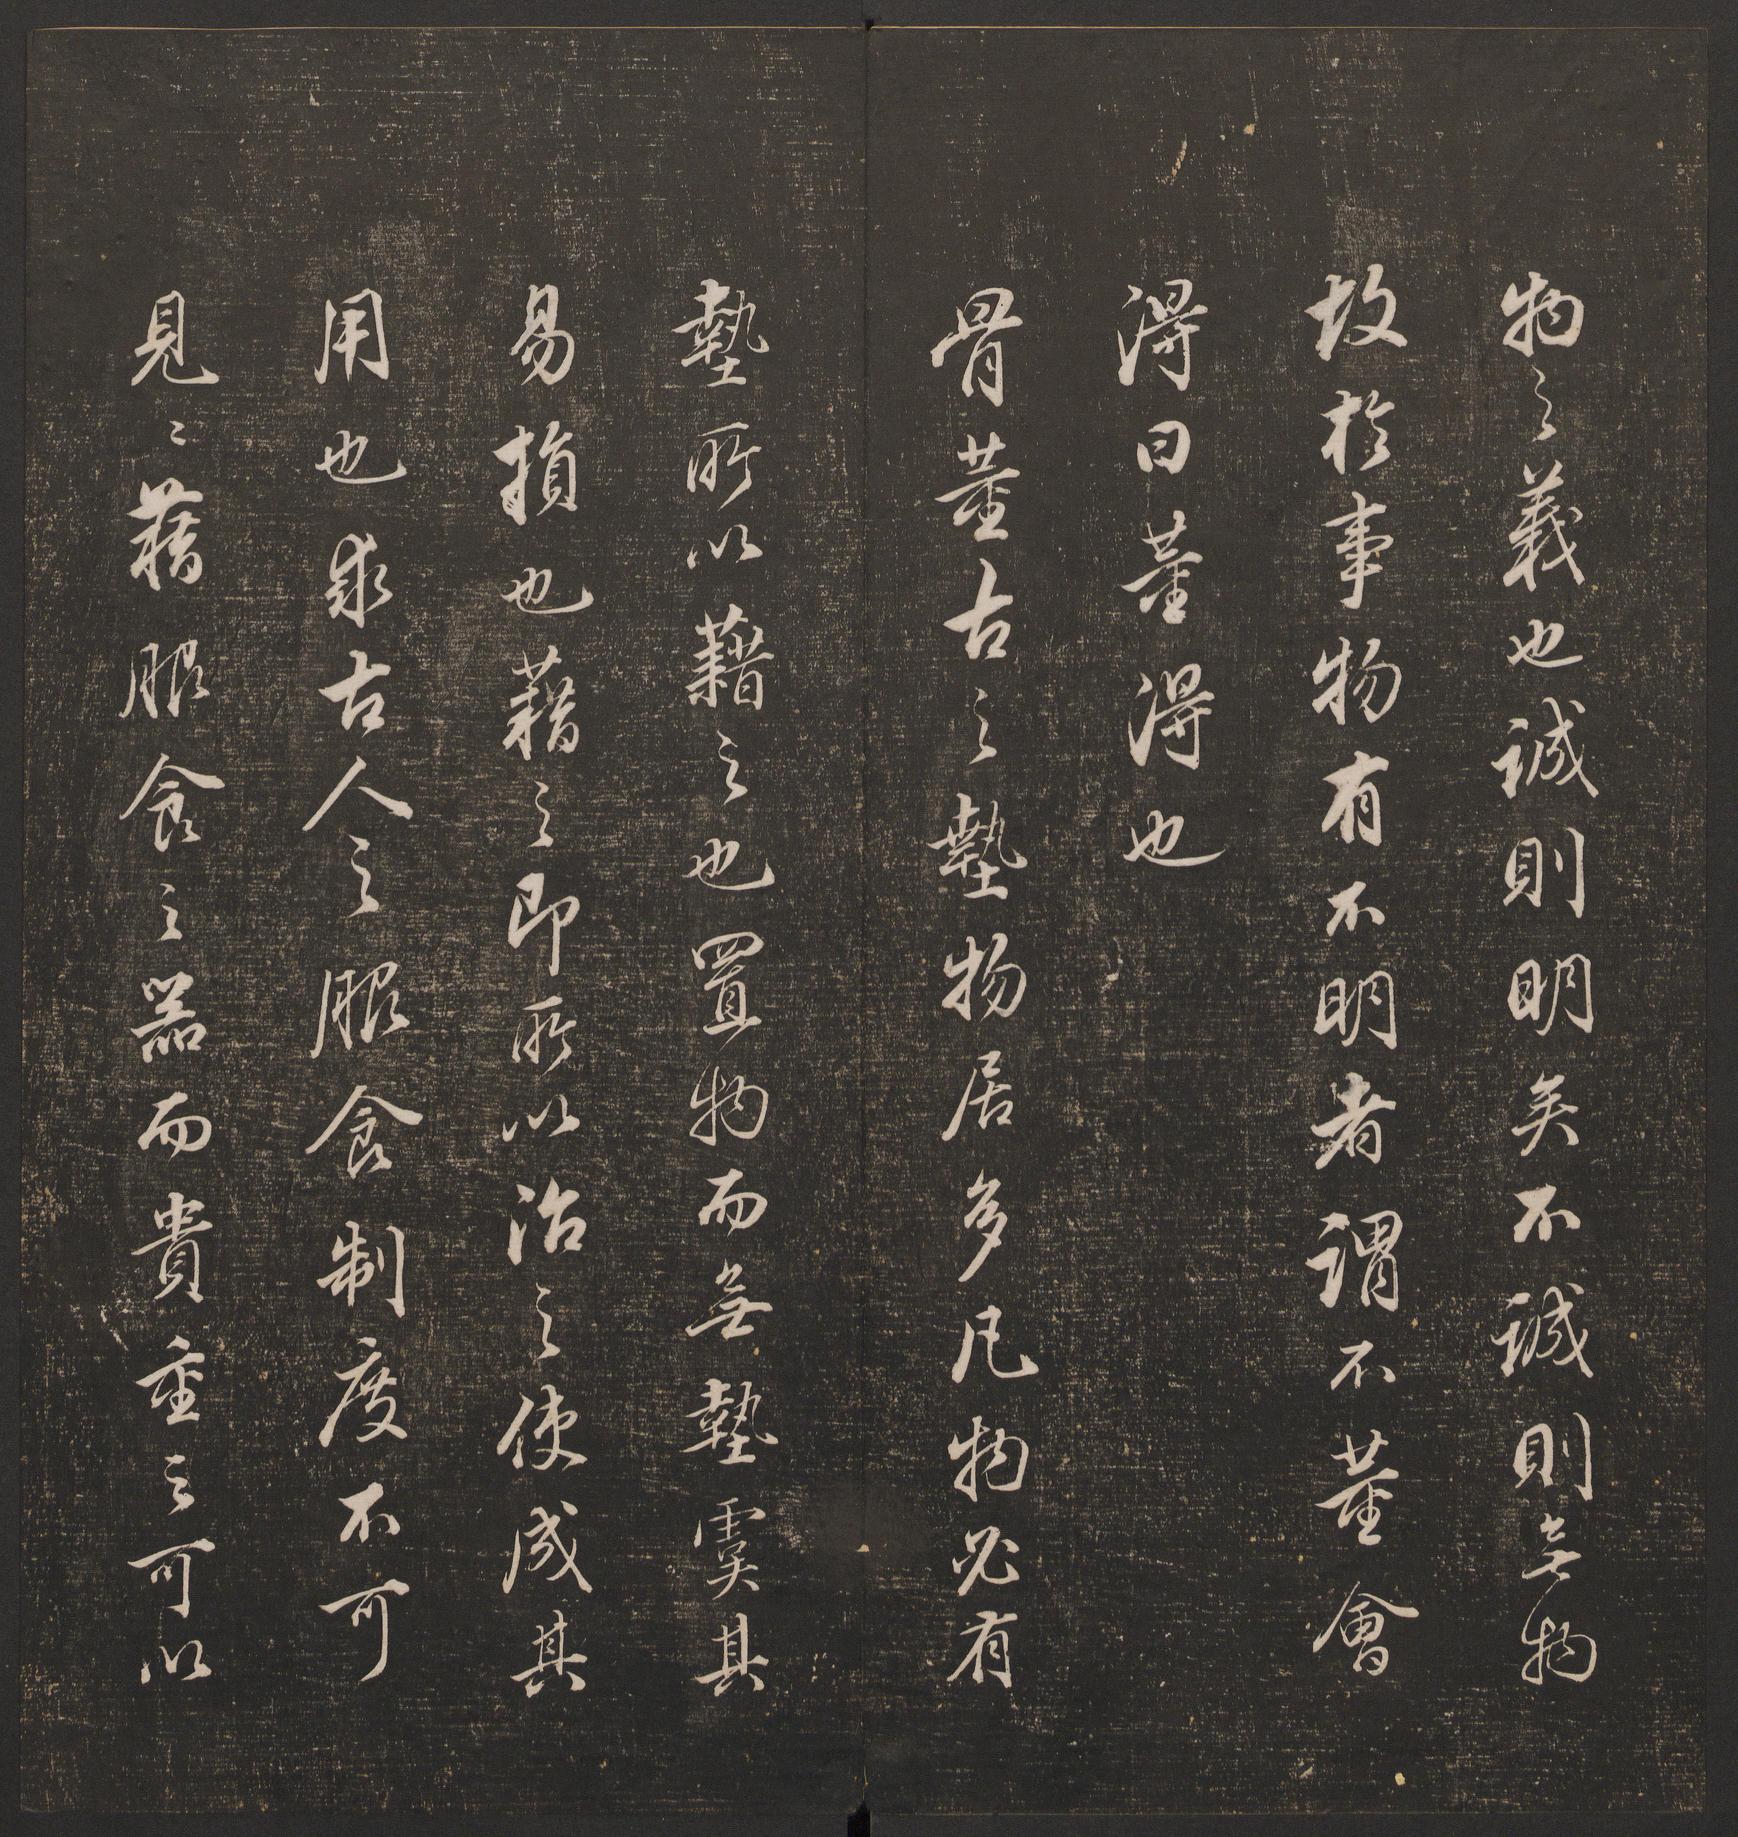 物之義也誠則明矣不誠則無物
故於事物有不明者謂不董會
得曰董得也
骨董古之墊物居多凡物必有
墊所以藉之也置物而無墊虞其
易損也藉之即所以治之使成其
用也求古人之服食制度不可
見〻藉服食之器而貴重之可以